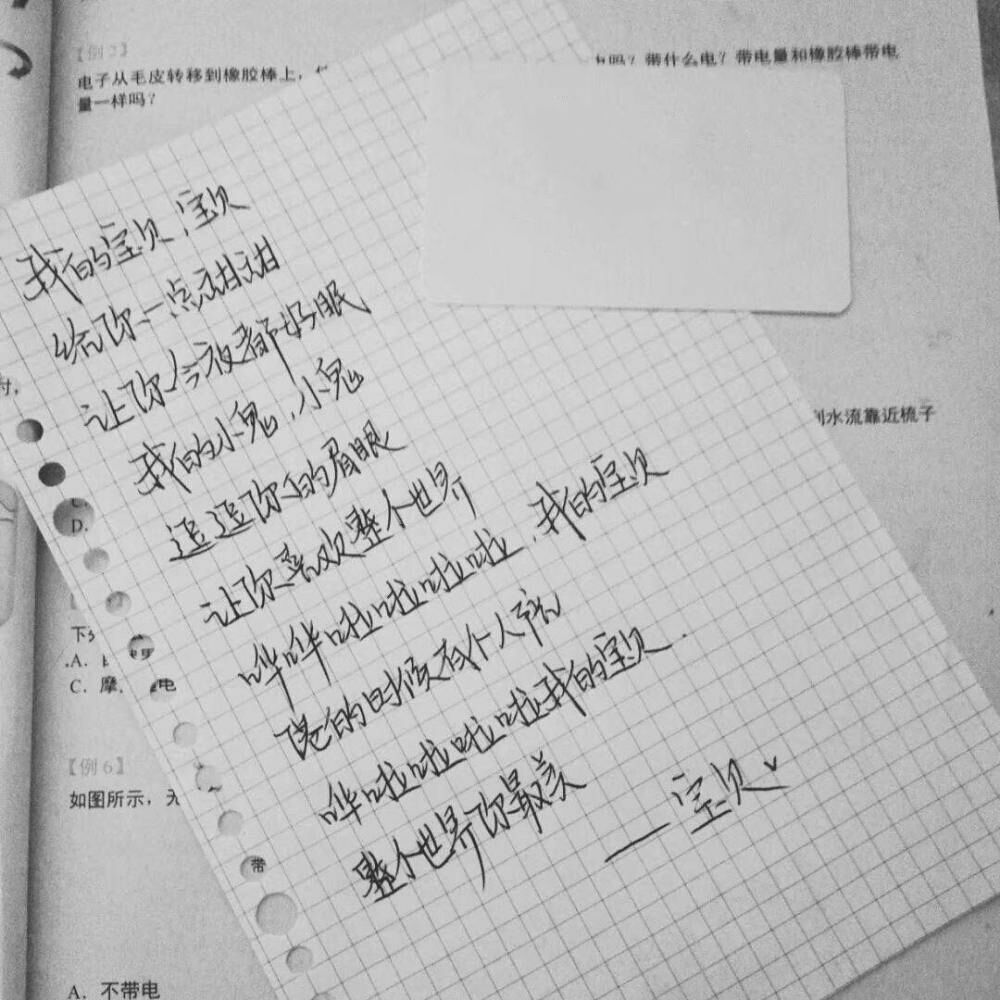 【例2】
电子从毛皮转移到橡胶棒上,
吗?带什么电?带电量和橡胶棒带电
量一样吗?
我的宝贝,宝贝
给你一点甜甜
让你今夜都好眠
我的小鬼,小鬼
逗逗你的眉眼
让你喜欢整个世界
哗哗啦啦啦啦,我的宝贝
倦的时候有个人陪
哗啦啦啦啦我的宝贝
整个世界你最美
——宝贝
水流靠近梳子
D.
A.
C. 摩
电
【例6】
如图所示,
带
A. 不带电